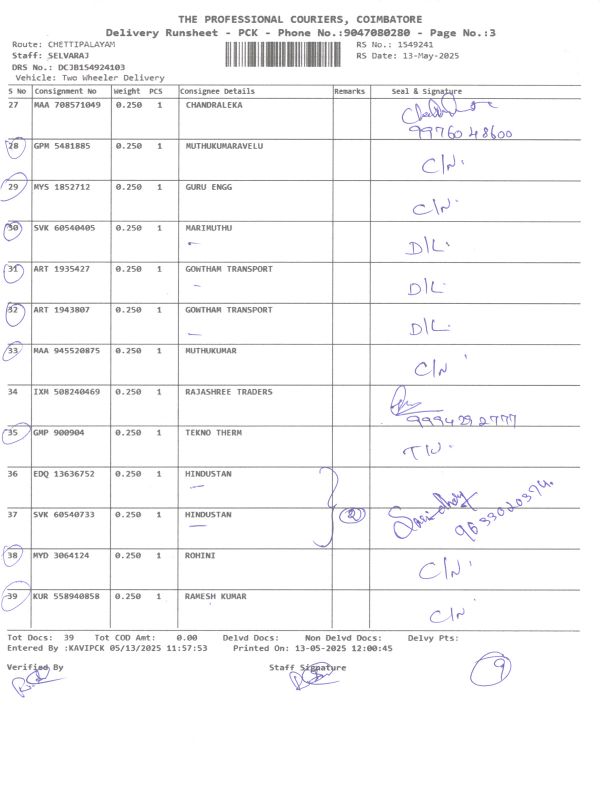 THE PROFESSIONAL COURIERS, COIMBATORE
Delivery Runsheet - PCK - Phone No.:9047080280 - Page No.:3
Route: CHETTIPALAYAM RS No.: 1549241
Staff: SELVARAJ RS Date: 13-May-2025
DRS No.: DCJB154924103
Vehicle: Two Wheeler Delivery
S No Consignment No Weight PCS Consignee Details Remarks Seal & Signature
27 MAA 708571049 0.250 1 CHANDRALEKA
9976048600
28 GPM 5481885 0.250 1 MUTHUKUMARAVELU C/N.
29 MYS 1852712 0.250 1 GURU ENGG C/N.
30 SVK 60540405 0.250 1 MARIMUTHU D/L.
31 ART 1935427 0.250 1 GOWTHAM TRANSPORT D/L.
32 ART 1943807 0.250 1 GOWTHAM TRANSPORT D/L.
33 MAA 945520875 0.250 1 MUTHUKUMAR C/N.
34 IXM 508240469 0.250 1 RAJASHREE TRADERS
9994292777
35 GMP 900904 0.250 1 TEKNO THERM
36 EDQ 13636752 0.250 1 HINDUSTAN
37 SVK 60540733 0.250 1 HINDUSTAN 2
38 MYD 3064124 0.250 1 ROHINI C/N.
39 KUR 558940858 0.250 1 RAMESH KUMAR C/N.
Tot Docs: 39 Tot COD Amt: 0.00 Delvd Docs: Non Delvd Docs: Delvy Pts:
Entered By :KAVIPCK 05/13/2025 11:57:53 Printed On: 13-05-2025 12:00:45
Verified By Staff Signature 9